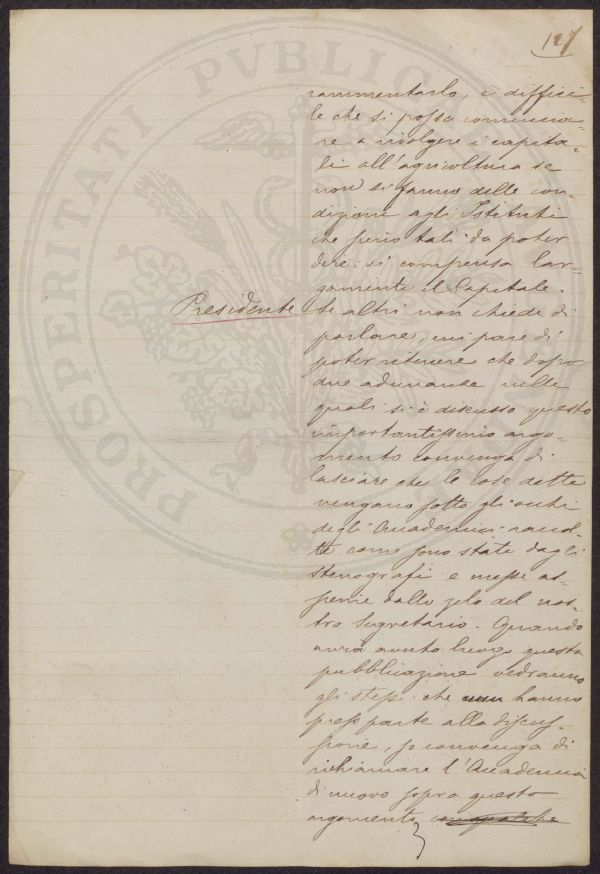 127
rammentarlo, è diffici-
le che si possa comincia-
re a rivolgere i capita-
li all'agricoltura se
non si fanno delle con-
dizione agli Istituti
che sieno tali da poter
dire: si compensa lar-
gamente il Capitale.
Presidente Se altri non chiede di
parlare, mi pare di
poter ritenere che dopo
due adunanze nelle
quali si è discusso questo
importantissimo argo-
mento convenga di
lasciare che le cose dette
vengano sotto gli occhi
degli Accademici raccol-
te come sono state dagli
stenografi e messe as-
sieme dallo zelo del nos-
tro Segretario. Quando
avrà avuto luogo questa
pubblicazione vedranno
gli stessi che hanno
preso parte alla discus-
sione, se convenga di
richiamare l'Accademia
di nuovo sopra questo
argomento
PROSPERITATI PVBLICAE